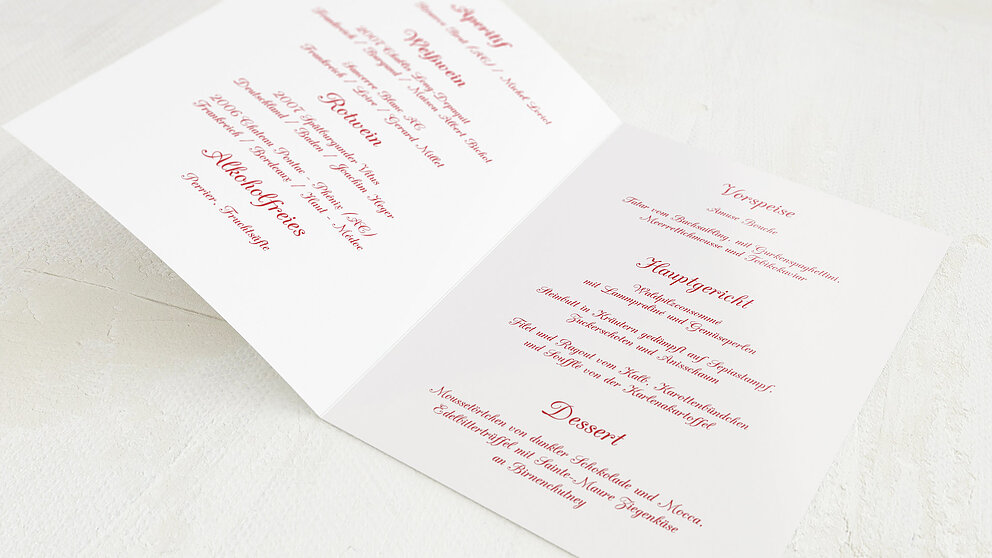 Aperitif
Brut (AC) / Michel Loriot
Weißwein
2007 Chablis Long Depaquit
Frankreich / Burgund / Maison Albert Bichot
Sancerre Blanc AC
Frankreich / Loire / Gerard Millet
Rotwein
2007 Spätburgunder Vitus
Deutschland / Baden / Joachim Heger
2006 Chateau Pontac - Phénix (AC)
Frankreich / Bordeaux / Haut - Médoc
Alkoholfreies
Perrier, Fruchtsäfte
Vorspeise
Amuse Bouche
Tatar vom Bachsaibling, mit Gurkenspaghettini,
Meerrettichmousse und Tobikokaviar
Hauptgericht
Waldpilzconsommé
mit Lammpraliné und Gemüseperlen
Steinbutt in Kräutern gedämpft auf Sepiastampf,
Zuckerschoten und Anisschaum
Filet und Ragout vom Kalb, Karottenbündchen
und Soufflé von der Harlenakartoffel
Dessert
Moussetörtchen von dunkler Schokolade und Mocca,
Edelbittertrüffel mit Sainte-Maure Ziegenkäse
an Birnenchutney